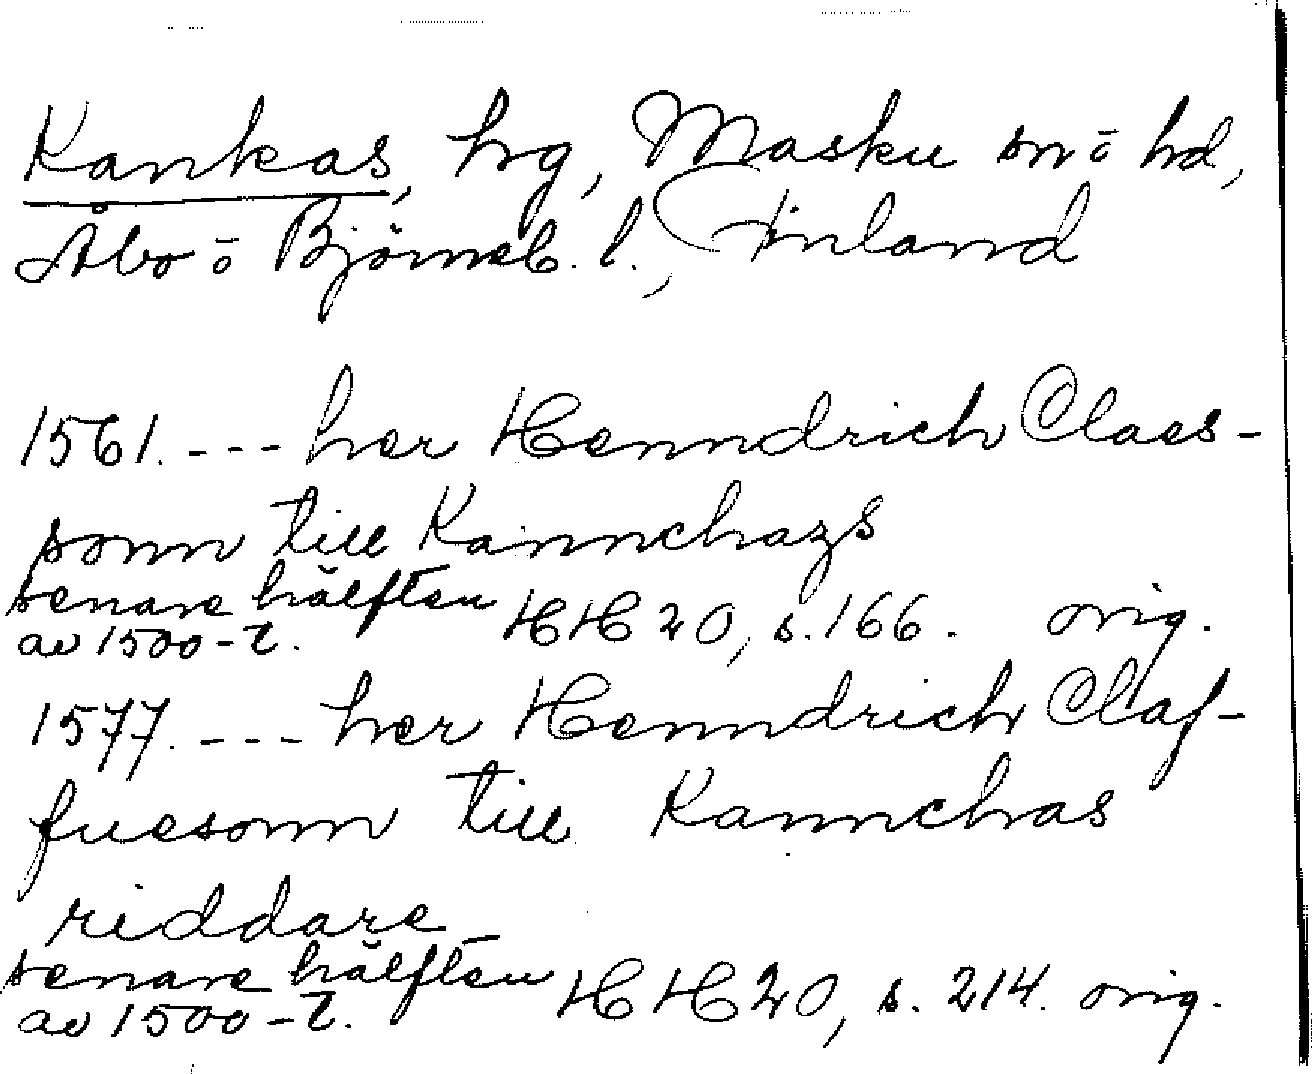 Kankas, hrg, Masku sn o hd,
Åbo o Björneb. l., Finland
1561. --- her Henndrich Claes-
sonn till Kannchazs
senare hälften
av 1500-t. HH 20, s. 166. orig.
1577. --- her Henndrich Claf-
fuesonn till Kannchas
riddare
senare hälften
av 1500-t. HH 20, s. 214. orig.